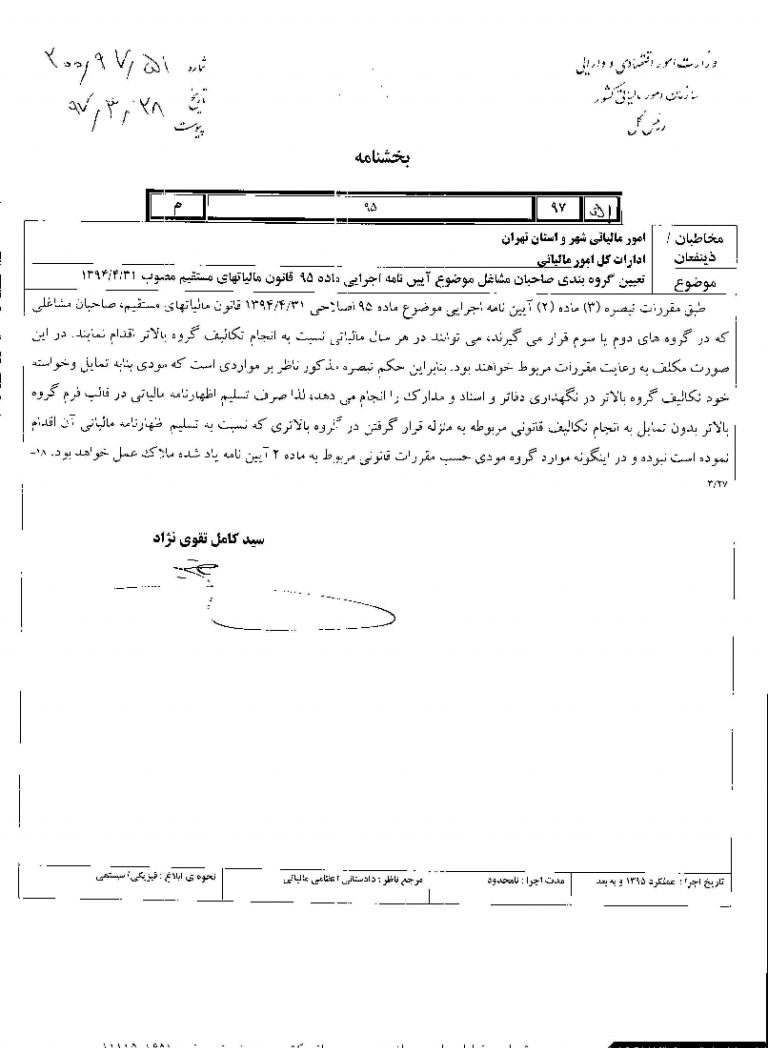 وزارت امور اقتصادی و دارایی
سازمان امور مالیاتی کشور
رئیس کل
شماره ۲۰۰/۹۷/۵۱
تاریخ ۹۷/۳/۲۸
پیوست
بخشنامه
۹۷ ۹۵ م
مخاطبان / ذینفعان
امور مالیاتی شهر و استان تهران
ادارات کل امور مالیاتی
موضوع
تعیین گروه بندی صاحبان مشاغل موضوع آیین نامه اجرایی ماده ۹۵ قانون مالیاتهای مستقیم مصوب ۱۳۹۴/۴/۳۱
طبق مقررات تبصره (۳) ماده (۲) آیین نامه اجرایی موضوع ماده ۹۵ اصلاحی ۱۳۹۴/۴/۳۱ قانون مالیاتهای مستقیم، صاحبان مشاغلی
که در گروه های دوم یا سوم قرار می گیرند، می توانند در هر سال مالیاتی نسبت به انجام تکالیف گروه بالاتر اقدام نمایند. در این
صورت مکلف به رعایت مقررات مربوط خواهند بود. بنابراین حکم تبصره مذکور ناظر بر مواردی است که مودی بنابه تمایل وخواسته
خود تکالیف گروه بالاتر در نگهداری دفاتر و اسناد و مدارک را انجام می دهد، لذا صرف تسلیم اظهارنامه مالیاتی در قالب فرم گروه
بالاتر بدون تمایل به انجام تکالیف قانونی مربوطه به منزله قرار گرفتن در گروه بالاتری که نسبت به تسلیم اظهارنامه مالیاتی آن اقدام
نموده است نبوده و در اینگونه موارد گروه مودی حسب مقررات قانونی مربوط به ماده ۲ آیین نامه یاد شده ملاک عمل خواهد بود. ۱۸-
۳/۲۷
سید کامل تقوی نژاد
تاریخ اجرا: عملکرد ۱۳۹۵ و به بعد
مدت اجرا : نامحدود
مرجع ناظر : دادستانی انتظامی مالیاتی
نحوه ی ابلاغ : فیزیکی/سیستمی